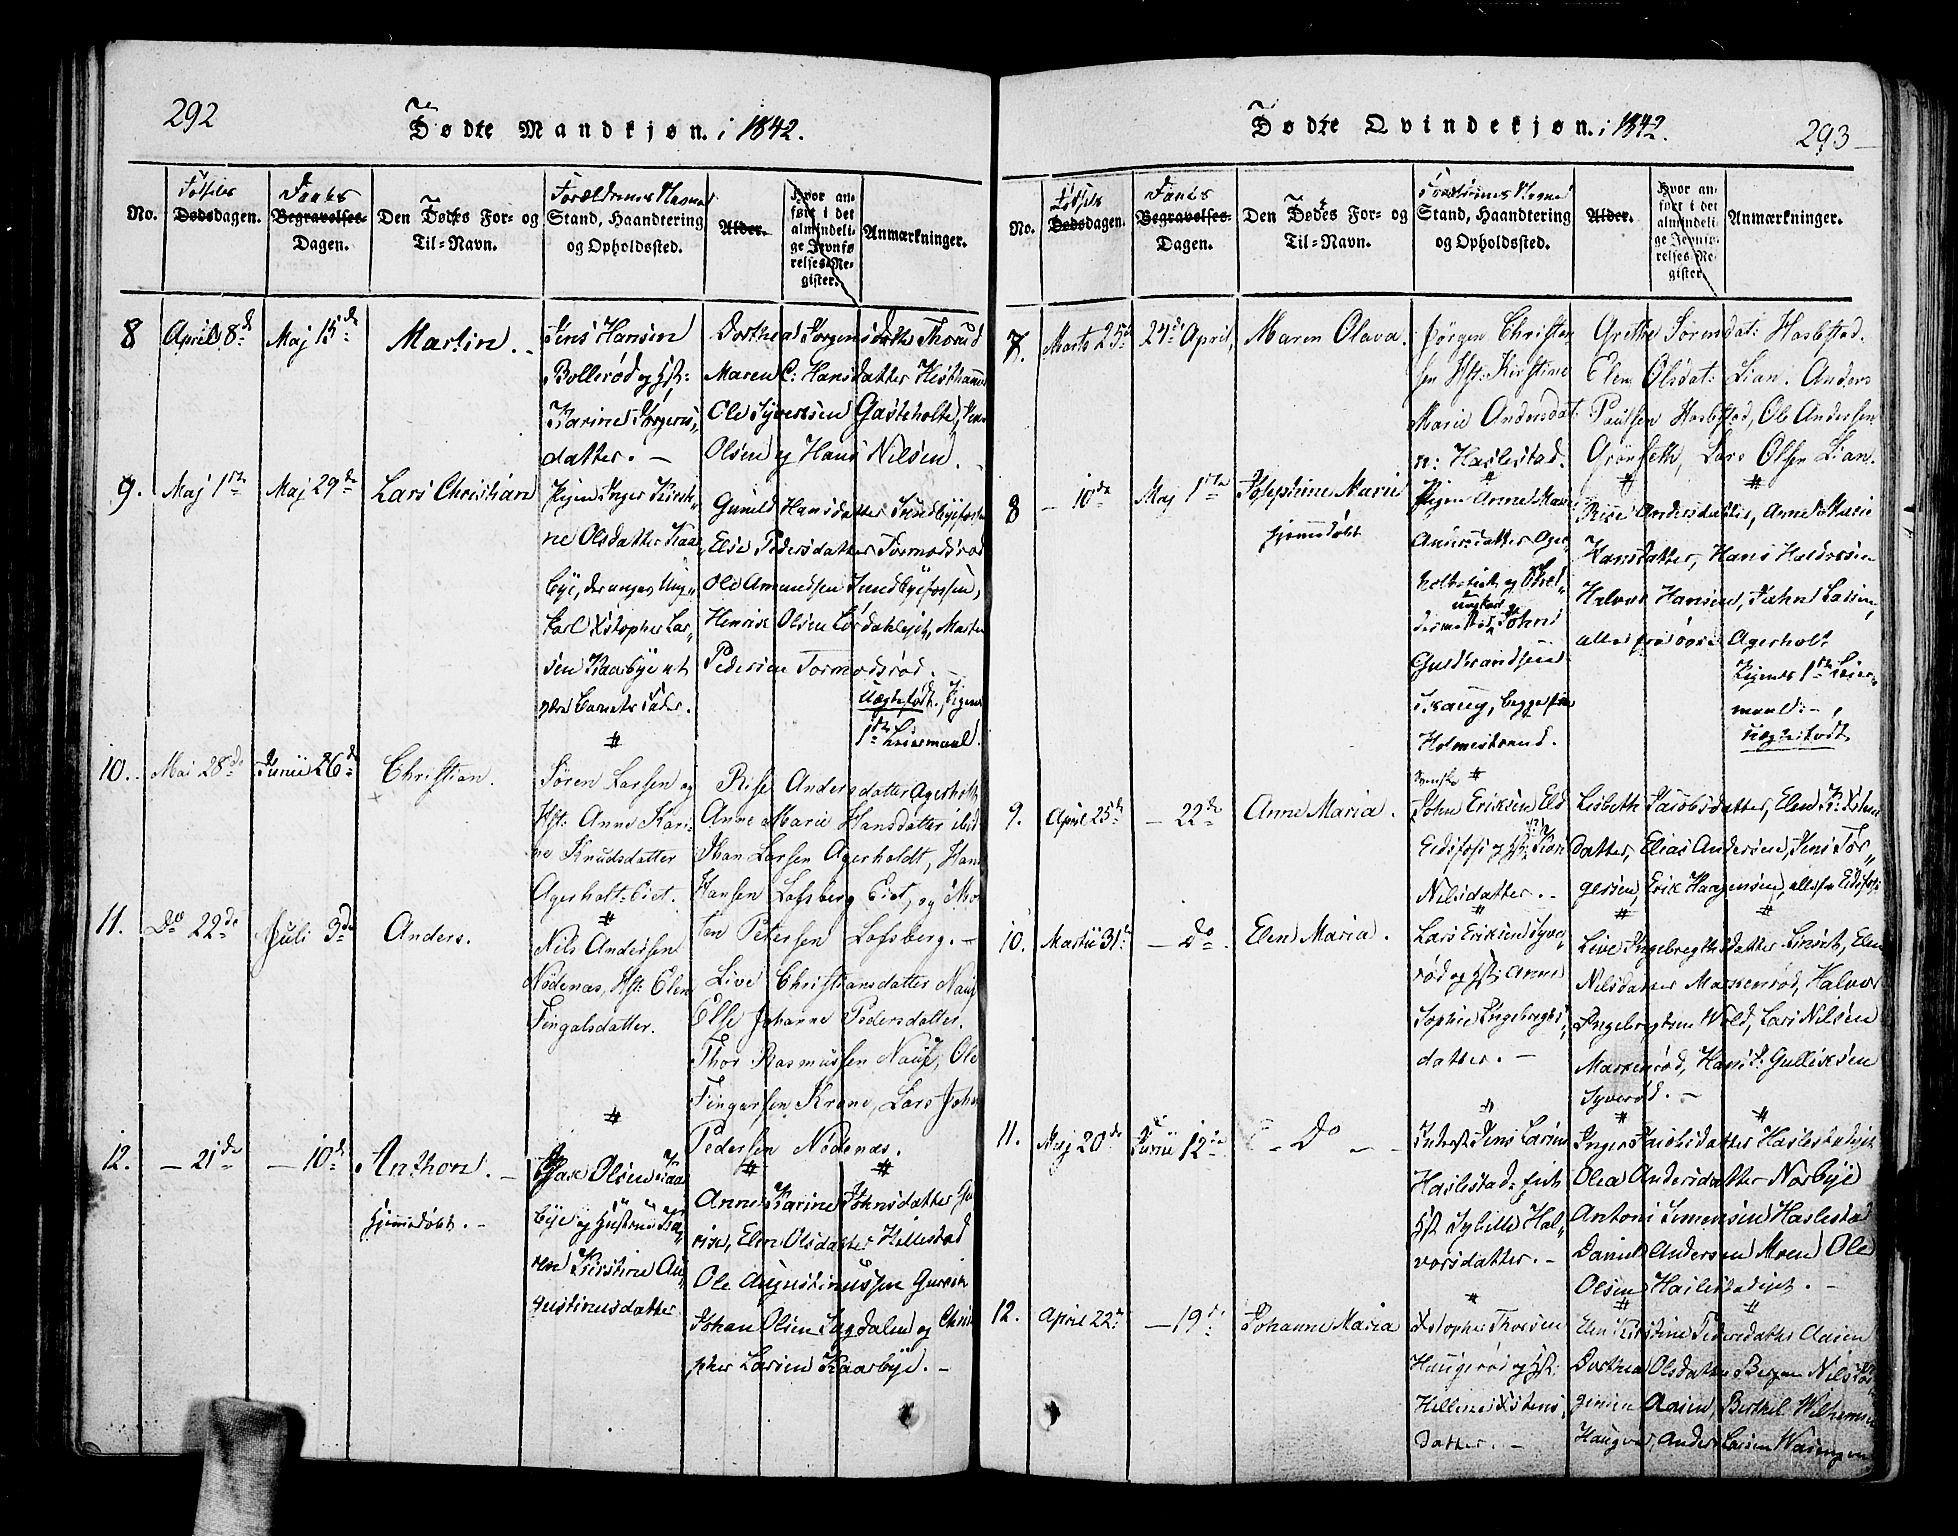 292
Dødte Mandkjøn. i 1842.
No.
Fødsels
Dødsdagen.
Daabs
Begravelses-
Dagen.
Den Dødes For- og
Til-Navn.
Forældrenes Navne
Stand, Haandtering
og Opholdssted.
Alder.
Hvor an-
ført i det
almindeli-
ge Jevnfø-
relses-Re-
gister.
Anmærkninger.
8
April 8de
Maj 15de
Martin.
Jens Hansen
Bollerød og Hst:
Karine Jørgens-
datter. —
Dorthea Jørgensdatter Thorud
Maren C: Hansdatter
Ole Syversen Gasteholte, Jens
Olsen og Hans Nilsen.
9.
Maj 1ste
Maj 29de
Lars Christian
Pigen Inger Kirsti-
ne Olsdatter Kaa-
bye, der angav Ung-
karl Xstopher Lar-
sen Kaabye at
være Barnets Fader.
Gunild Hansdatter Sundbyefossen
Else Pedersdatter Tormodsrød
Ole Amundsen Sundbyefossen,
Henrik Olsen Lørdahlejet, Marten
Pedersen Tormodsrød. —
Uægtefødt, Pigens
1ste Leiermaal.
10.
Mai 28de
Junii 26de
Christian.
Søren Larsen og
Hst: Anne Kari-
ne Knudsdatter
Agerholt-Eiet.
Rise Andersdatter Agerholt
Anne Marie Hansdatter ibid
Johan Larsen Agerholdt, Hans
Hansen Lofsberg Eiet, og Mor-
ten Petersen Lofsberg. —
11.
Do 22de
Juli 3de
Anders.
Nils Andersen
Nødenæs, Hst: Elen
Fingalsdatter.
Live Christiansdatter Nauf
Else Johanne Pedersdatter.
Thor Rasmussen Nauf, Ole
Fingarsen Krane, Lars Johan
Pedersen Nødenæs.
12.
— 21de
— 10de
Anthon. —
Hjemmedøbt. —
Olsen Kaa-
bye og Hustrue Ka-
ren Kirstine Au-
gustinusdatter
Anne Karine Johnsdatter Gu-
rise, Elen Olsdatter Hillestad
Ole Augustinussen
Johan Olsen Sagdalen og Christ
pher Larsen Kaarbye. —
293
Dødte Qvindekjøn. i 1842.
No.
Fødsels
Dødsdagen.
Daabs
Begravelses-
Dagen.
Den Dødes For- og
Til-Navn.
Forældrenes Navne
Stand, Haandtering
og Opholdssted.
Alder.
Hvor an-
ført i det
almindeli-
ge Jevnfø-
relses-Re-
gister.
Anmærkninger.
7.
Marts 25de
24de April,
Maren Olava.
Jørgen Christen
sen Hst: Kirstine
Marie Andersdat:
n: Haslestad.
Grethe Sørensdat: Haslestad.
Elen Olsdat: Lian. Anders
Paulsen Haslestad, Ole Andersen
Grønseth, Lars Olsen Lian.
8
— 10de
Maj 1ste
Josephine Marie
hjemmedøbt
Pigen Anne Marie
Andersdatter Ager-
holt
Ungkarl Johns
Guldbrandsen
Skaug, begge fra
Holmestrand.
Rise Andersdatter, Anne Marie
Hansdatter, Hans Halvorsen
Halvor Hansen, Johan Larsen,
alle fra øvre Agerholt
Pigens 1ste Leier-
maal: —
Uægtefødt
9.
April 25de
— 22de
Anne Maria.
Svenske
John Eriksen Eld
Eidsfoss og Hst: Kari
Nilsdatter. —
Lisbeth Jacobsdatter, Elen K: Xstens
datter, Elias Andersen, Jens Jør-
gensen, Erik Haagensen, alle fra Eidsfos
10.
Martii 31te
— Do
Elen Maria.
Lars Eriksen Syve-
rød og Hst: Anne
Sophie Engebregts-
datter. —
Live Ingebregtsdatter Linset, Elen
Nilsdatter Markerød, Halvor
Ingebrigtsen Wold, Lars Nilsen
Markerød, Hans P: Gulliksen
Syverød. —
11.
Maj 20de
Junii 12te
— Do —
Inderst Jens Larsen
Haslestad-Eiet
Hst Sybille Hal-
vorsdatter. —
Inger Jacobsdatter Haslestadejet
Olea Andersdatter Nørbye
Antoni Simensen Haslestad
Daniel Andersen Moen Ole
Olsen Haslestadejet. —
12.
April 22de
— 19de
Johanne Maria
Xstopher Thorsen
Haugerød og Hst:
Helline Xstens-
datter. —
Elen Kirstine Pedersdatter Aasen
Dorthea Olsdatter Bergan Nils Jør-
gensen Aasen, Berthel Wilhemsen
Haugrød, Anders Larsen